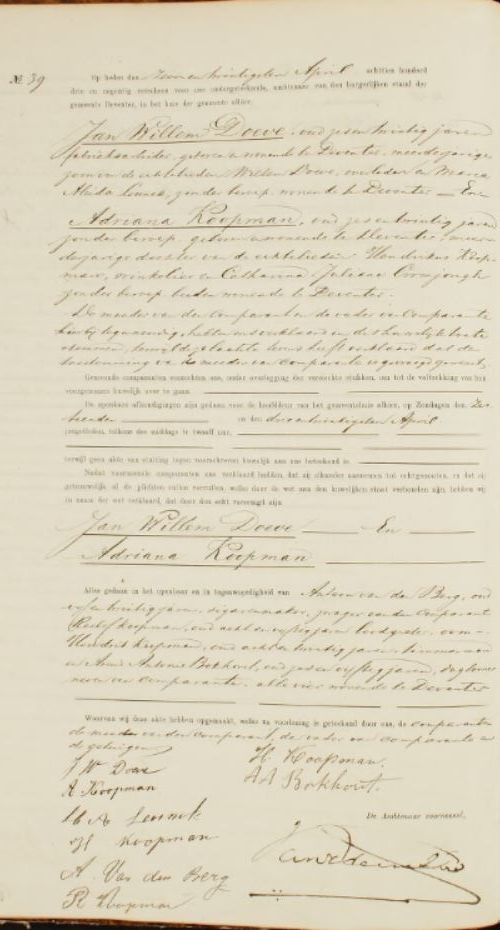 № 39
Op heden den Zeven en twintigsten April achttien honderd
drie en negentig verscheen voor ons ondergeteekende, ambtenaar van den burgerlijken stand der
gemeente Deventer, in het huis der gemeente aldaar:
Jan Willem Doeve, oud zes en twintig jaren
fabrieksarbeider, geboren en wonende te Deventer, meerderjarige
zoon van de echtelieden Willem Doeve, overleden en Maria
zonder beroep, wonende te Deventer — En
Adriana Koopman, oud zes en twintig jaren
zonder beroep, geboren en wonende te Deventer, meer-
derjarige dochter van de echtelieden Hendrikus Koop-
man, winkelier en Catharina Juliana
zonder beroep beiden wonende te Deventer.
De moeder van den comparant en de vader van comparante
hierbij tegenwoordig hebben ons verklaard in dit huwelijk toe te
stemmen, terwijl de laatste tevens heeft verklaard dat de
toestemming van de moeder van comparante is gevraagd geworden
Genoemde comparanten verzochten ons, onder overlegging der vereischte stukken, om tot de voltrekking van het
voorgenomen huwelijk over te gaan.
De openbare afkondigingen zijn gedaan voor de hoofddeur van het gemeentehuis alhier, op Zondagen den Zes-
tienden en den drie en twintigsten April
jongstleden, telkens des middags te twaalf ure,
terwijl geen akte van stuiting tegen voorschreven huwelijk aan ons beteekend is.
Nadat voornoemde comparanten ons verklaard hebben, dat zij elkander aannemen tot echtgenooten, en dat zij
getrouwelijk al de plichten zullen vervullen, welke door de wet aan den huwelijken staat verbonden zijn, hebben wij
in naam der wet verklaard, dat door den echt vereenigd zijn
Jan Willem Doeve — En
Adriana Koopman
Alles gedaan in het openbaar en in tegenwoordigheid van Antoon van den Berg, oud
en twintig jaren, sigarenmaker, zwager van den comparant
Roelof Koopman, oud acht en vijftig jaren, oom,
Hendrik Koopman, oud acht en twintig jaren, timmerman
en Arend Antonie Bokhorst, oud zes en vijftig jaren,
neven van comparante, alle vier wonende te Deventer
Waarvan wij deze akte hebben opgemaakt, welke na voorlezing is geteekend door ons, de comparanten
de moeder van den comparant, de vader van comparante en
de getuigen
J W Doeve
A Koopman
H. Koopman.
A A Bokhorst.
Koopman
De Ambtenaar voornoemd,
A. Van den Berg
R Koopman